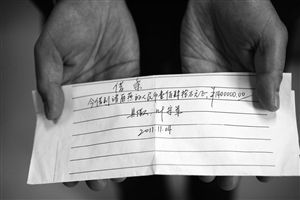 借条
今借到 人民币壹佰肆拾万元正,¥1400000.00
具借人:叶
2011.11.04